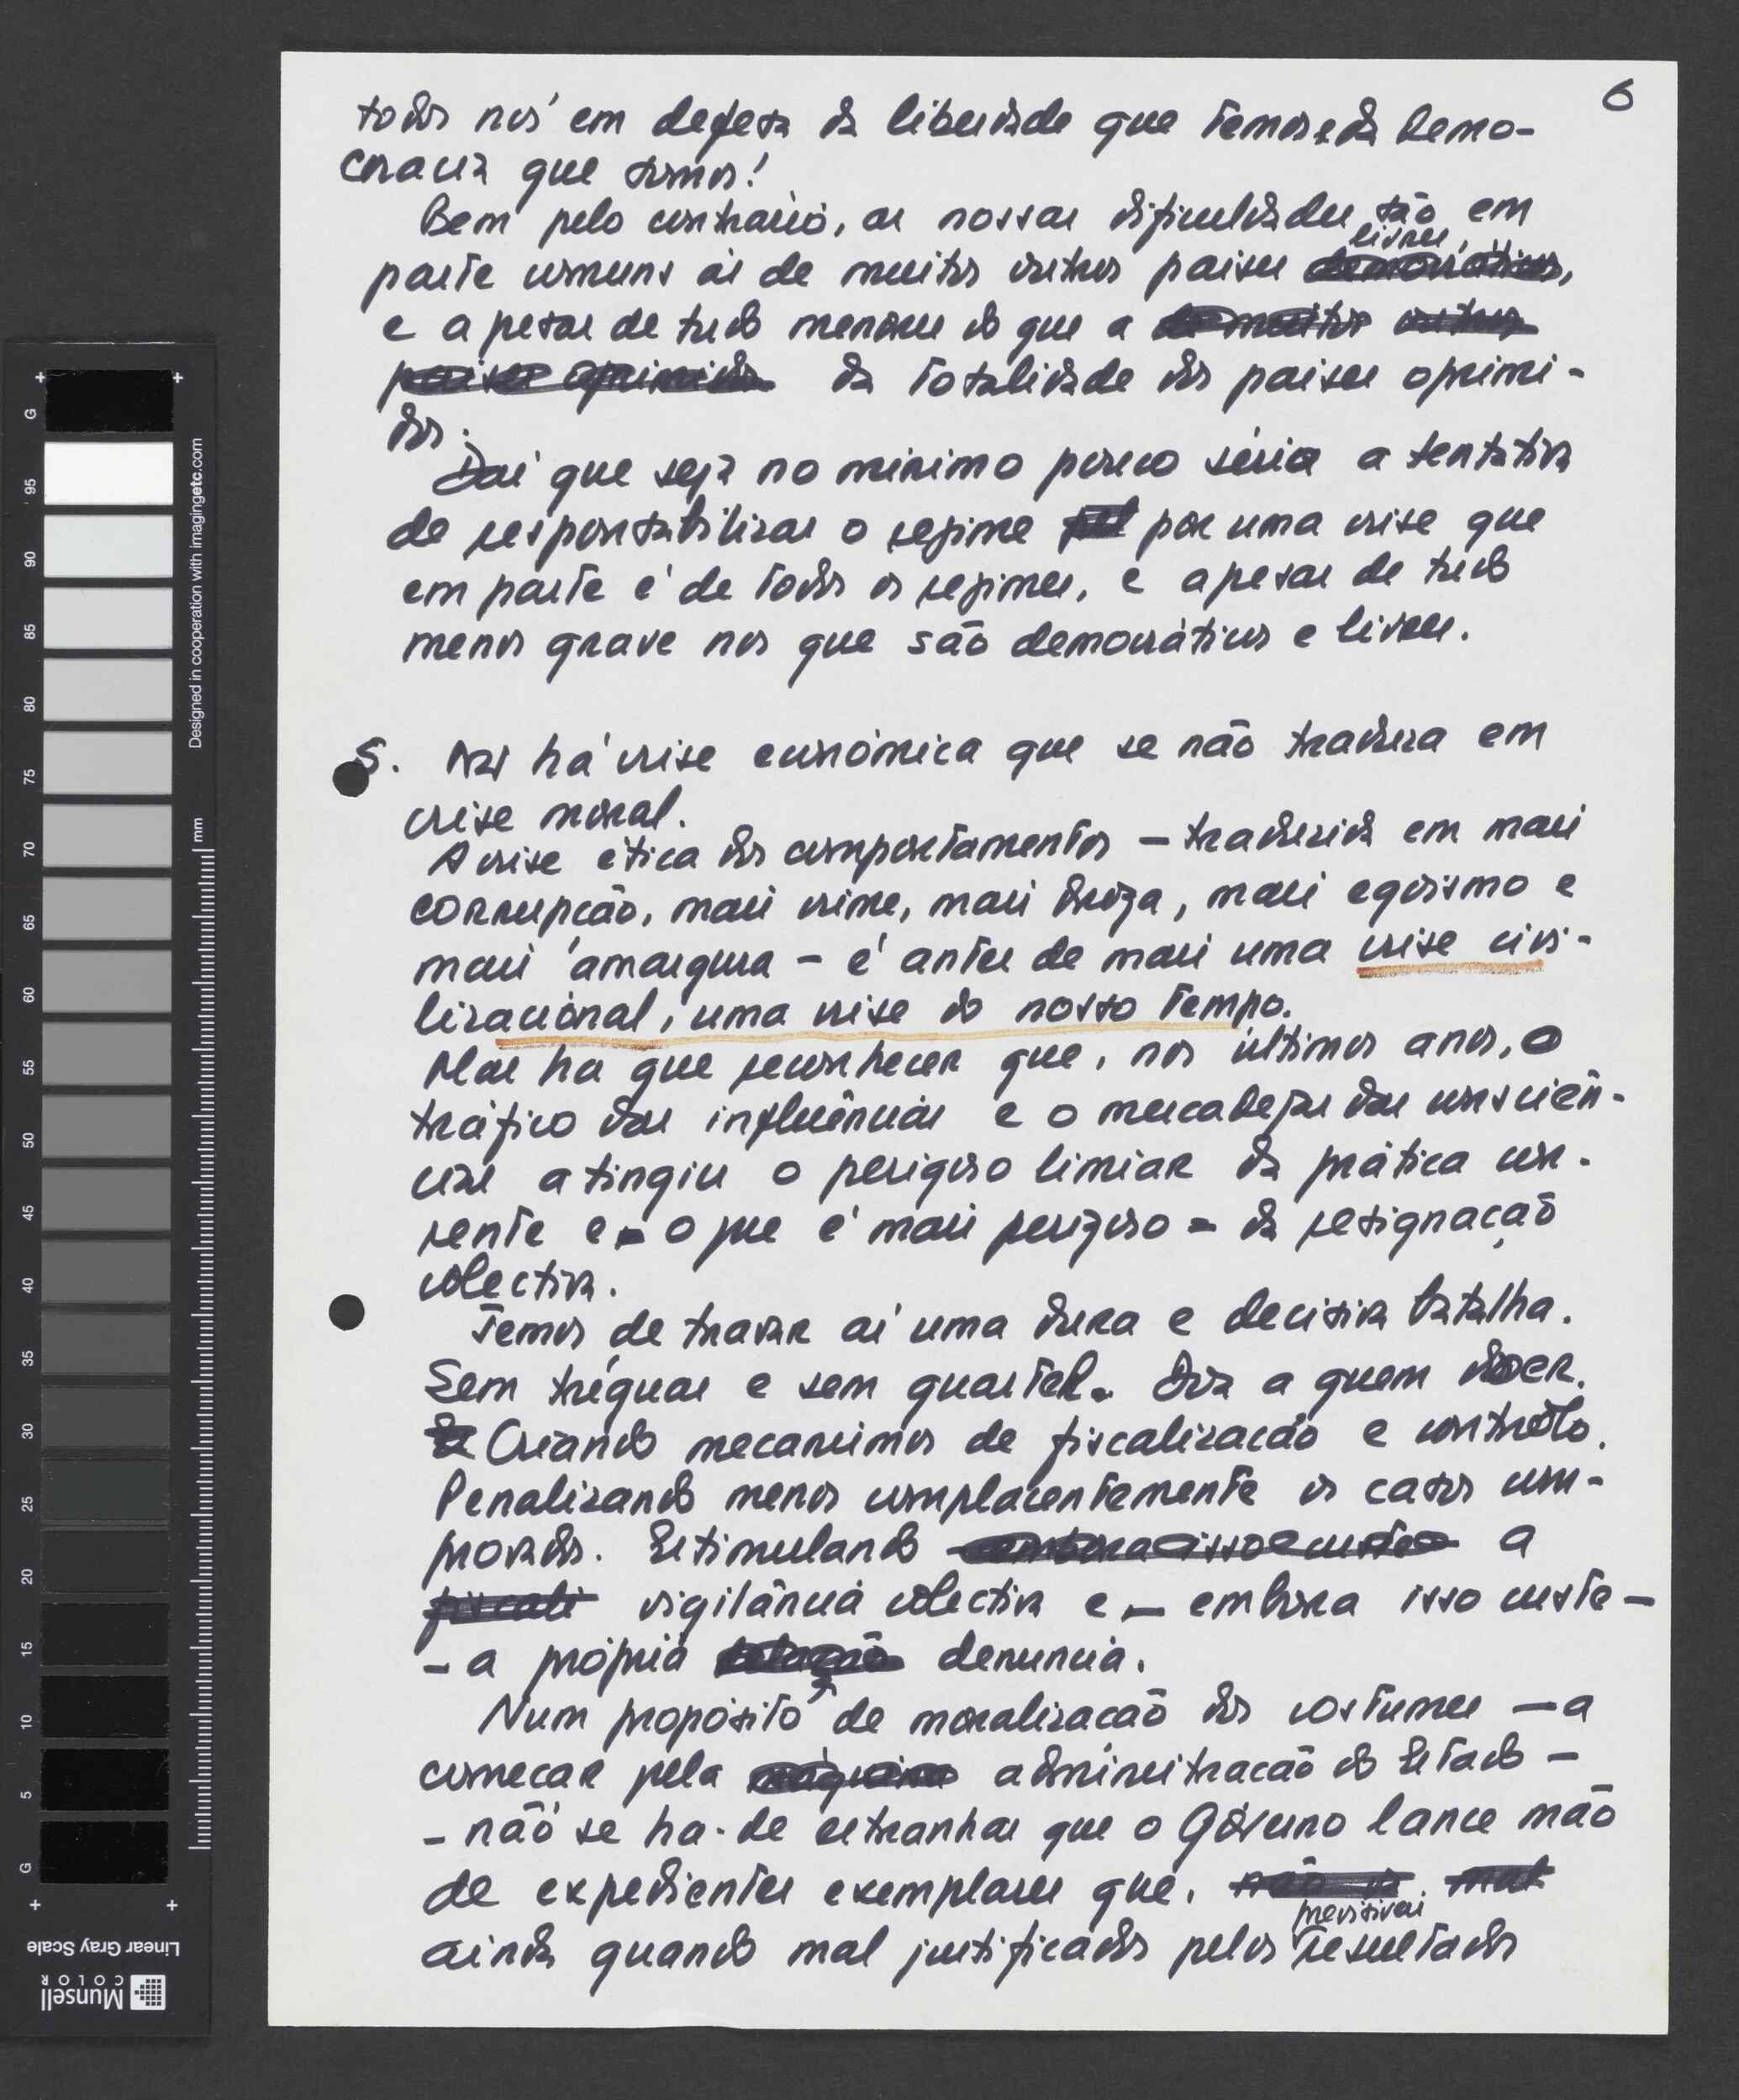 6
todos nós em defesa da liberdade que temos e da Demo-
cracia que somos!
Bem pelo contrário, as nossas dificuldades são em
livres,
parte comuns às de muitos outros países democráticos,
e apesar de tudo menores do que a de muitos outros
países oprimidos da totalidade dos países oprimi-
dos.
Daí que seja no mínimo pouco séria a tentativa
de responsabilizar o regime por uma crise que
em parte é de todos os regimes, e apesar de tudo
menos grave nos que são democráticos e livres.
5. Não há crise económica que se não traduza em
crise moral.
A crise ética dos comportamentos - traduzida em mais
corrupção, mais crime, mais droga, mais egoísmo e
mais amargura - é antes de mais uma crise civi-
lizacional, uma crise do nosso tempo.
Mas há que reconhecer que, nos últimos anos, o
tráfico das influências e o mercadejar das consciên-
cias atingiu o perigoso limiar da prática cor-
rente e - o que é mais perigoso - da resignação
colectiva.
Temos de travar aí uma dura e decisiva batalha.
Sem tréguas e sem quartel. Doa a quem doer.
Criando mecanismos de fiscalização e contrôlo.
Penalizando menos complacentemente os casos com-
provados. Estimulando embora isso custe a
fiscali vigilância colectiva e - embora isso custe -
- a própria delação denuncia.
Num propósito de moralização dos costumes - a
começar pela máquina administração do Estado -
- não se há-de estranhar que o Govêrno lance mão
de expedientes exemplares que, não se mal
previsíveis
ainda quando mal justificados pelos resultados
G 95 90 85 80 75 70 65 60 55 50 45 40 35 30 25 20 15 10 5 G
mm
Designed in cooperation with imagingetc.com
Linear Gray Scale
Munsell
COLOR